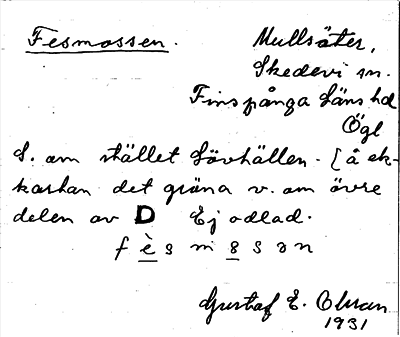 Fesmossen. Mullsäter,
Skedevi sn.
Finspånga läns hd
Ögl
S. om stället Lövhällen. [å ek-
kartan det gröna v. om övre
delen av D Ej odlad.
f è s m o s ə n
Gustaf E. Olsson
1931